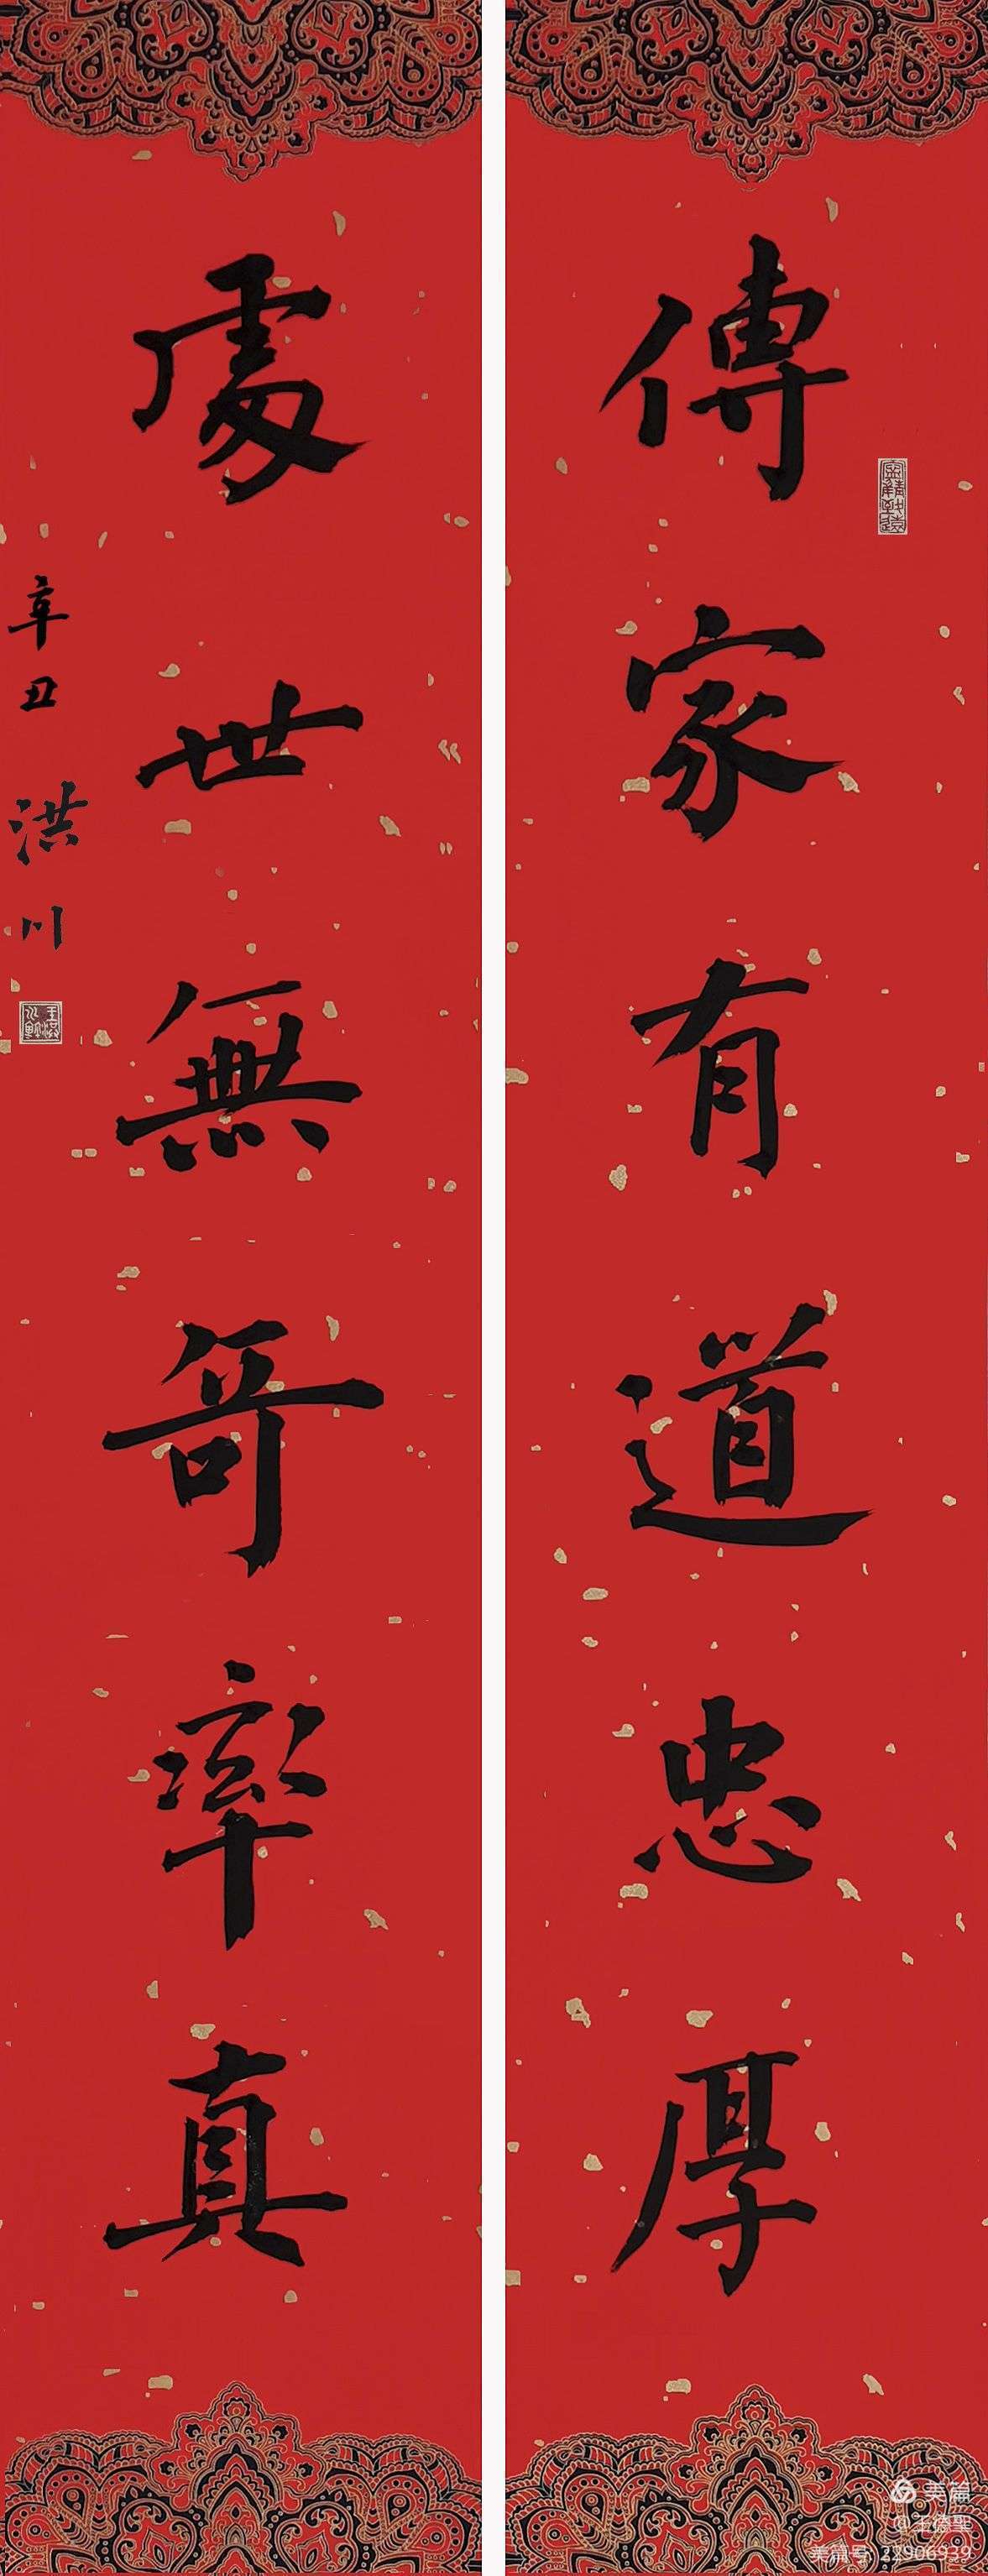 傳家有道忠厚
處世無奇率真
辛丑 洪川
寧靜致遠
美篇
美篇号: 22906939